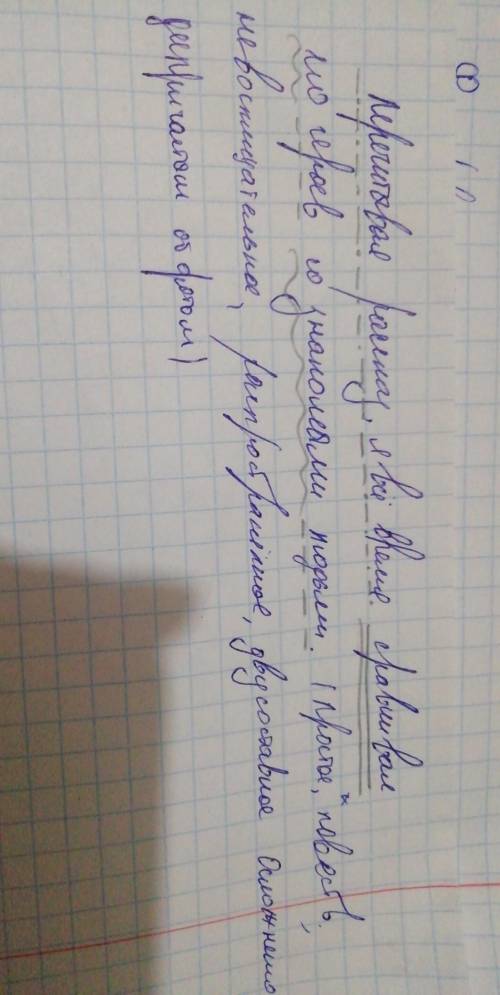 1 п
Перечитывая рассказ, я всё время сравнивал
его героев со знакомыми людьми. (Простое, повеств.,
невосклицательное, распространённое, двусоставное осложнено
деепричастным оборотом)